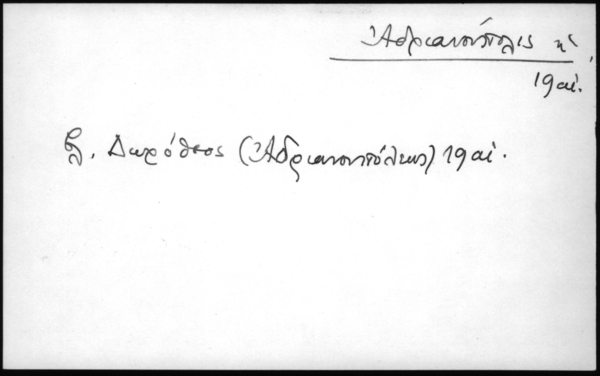 Ἀδριανούπολις
19 αἰ.
βλ. Δωρόθεος (Ἀδριανουπόλεως) 19 αἰ.